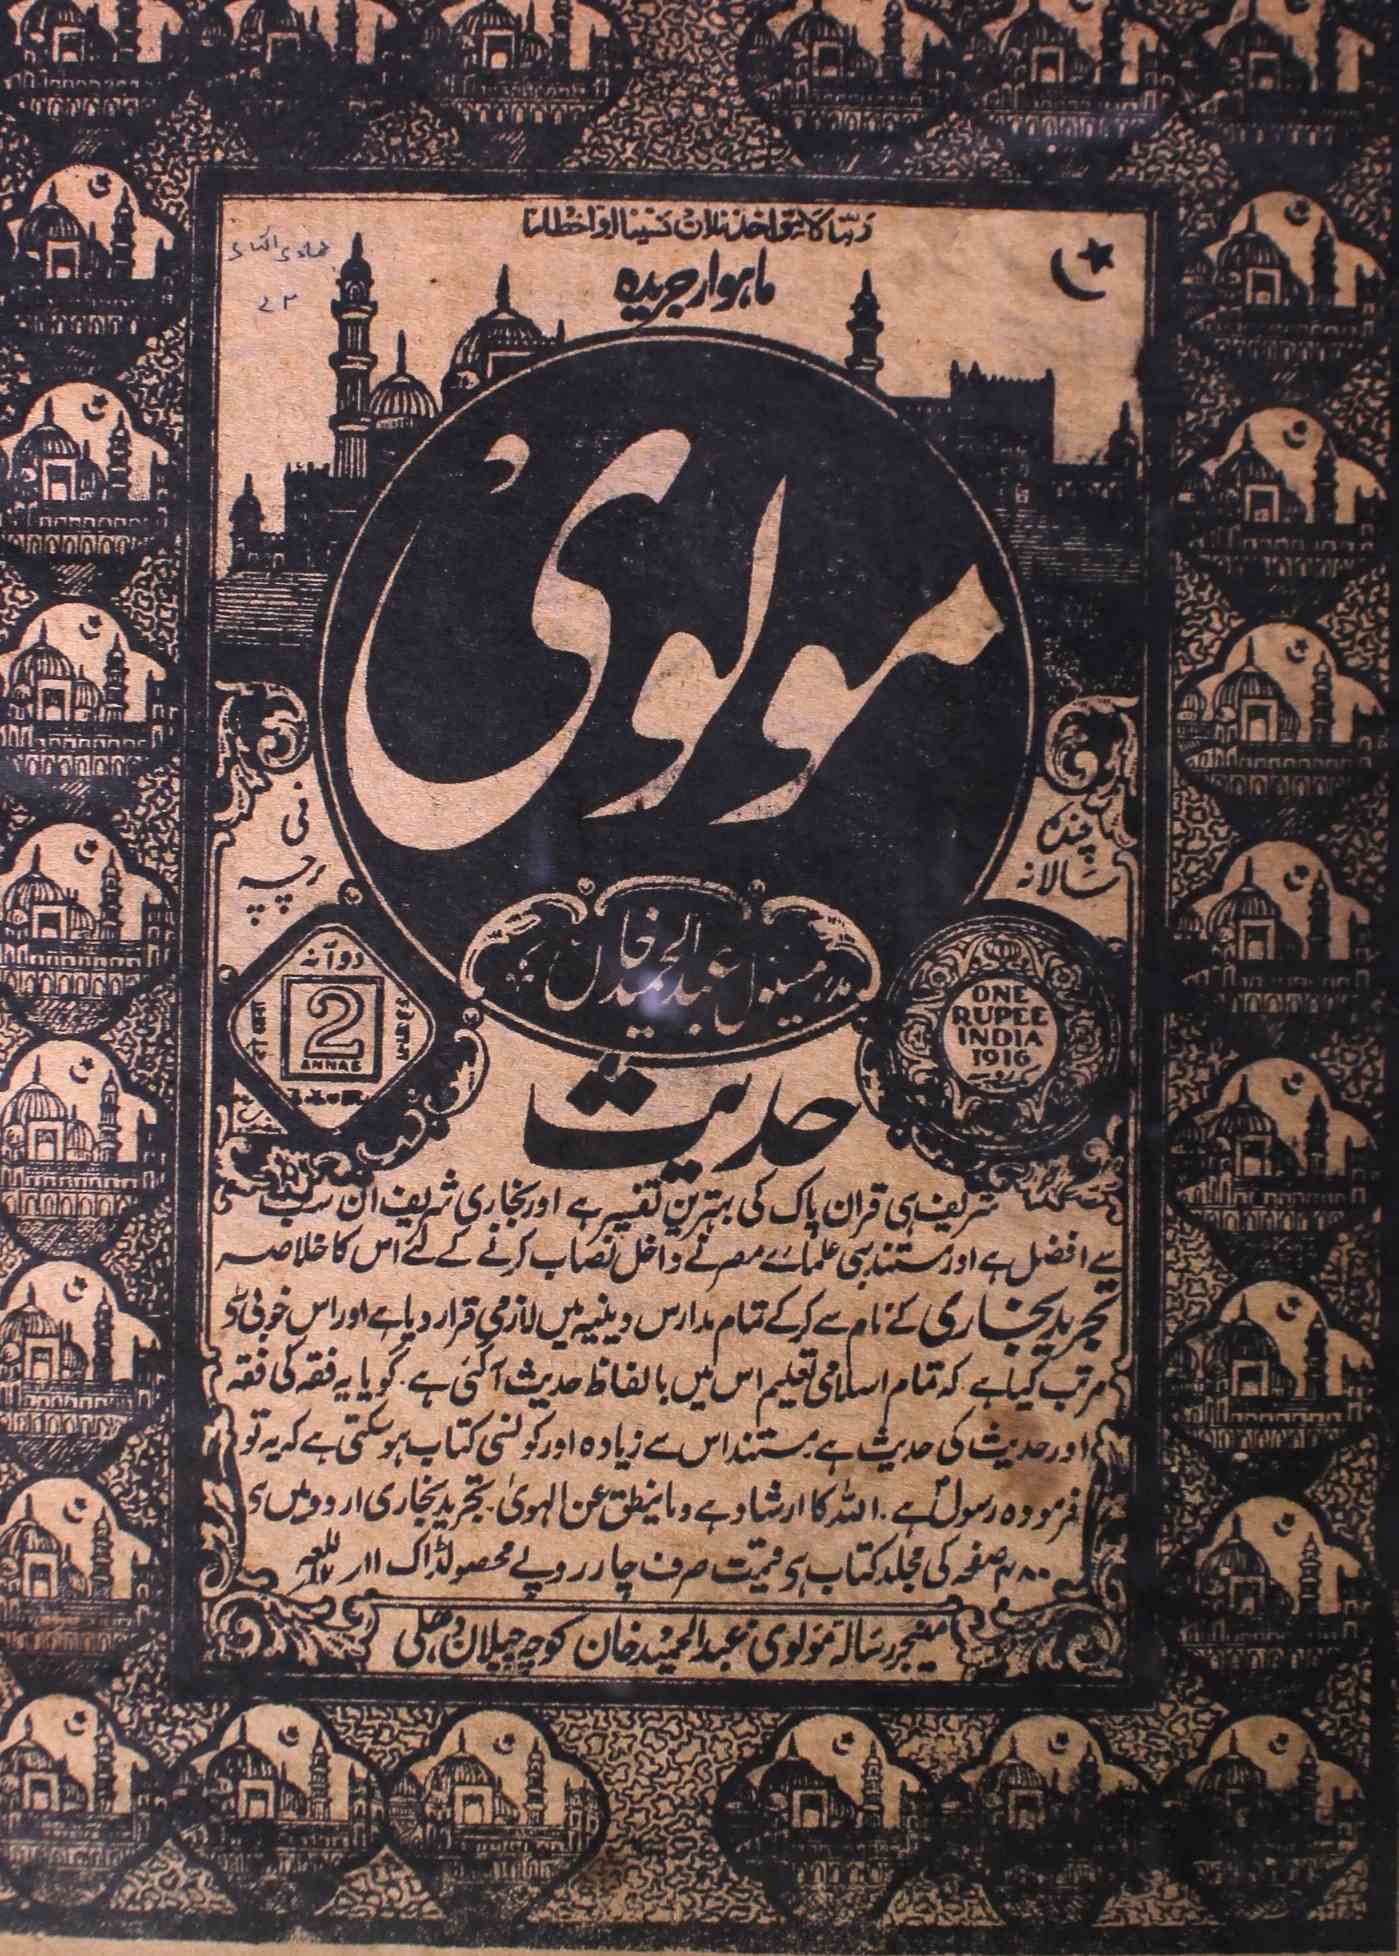 ربنا لا تؤاخذنا ان نسینا او اخطانا
ماہوار جریدہ
مولوی
چندہ سالانہ
فی پرچہ
مدیر مسئول عبدالحمید خاں
ONE
RUPEE
INDIA
1916
دو آنہ
2
ANNAS
حدیث
شریف ہی قران پاک کی بہترین تفسیر ہے اور بخاری شریف ان سب
سے افضل ہے اور مستند بھی علمائے مصر نے داخل نصاب کرنے کے لئے اس کا خلاصہ
تجرید بخاری کے نام سے کرکے تمام مدارس دینیہ میں لازمی قرار دیا ہے اور اس خوبی سے
مرتب کیا ہے کہ تمام اسلامی تعلیم اس میں بالفاظ حدیث آگئی ہے۔ گویا یہ فقہ کی فقہ
اور حدیث کی حدیث ہے مستند اس سے زیادہ اور کونسی کتاب ہوسکتی ہے کہ یہ تو
فرمودہ رسولؐ ہے۔ اللہ کا ارشاد ہے وما ینطق عن الہویٰ۔ تجرید بخاری اردو میں
صفحہ کی مجلد کتاب ہی قیمت صرف چار روپے محصولڈاک ۱۱ر
مینجر رسالہ مولوی عبدالحمید خان کوچہ چیلان دہلی